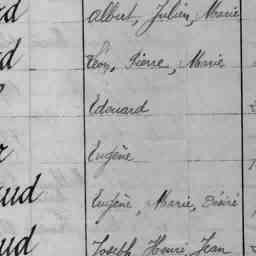 d Albert, Julien, Marie
d Léon, Pierre, Marie
Edouard
r Eugène
ud Eugène, Marie, Désiré
ud Joseph, Henri, Jean